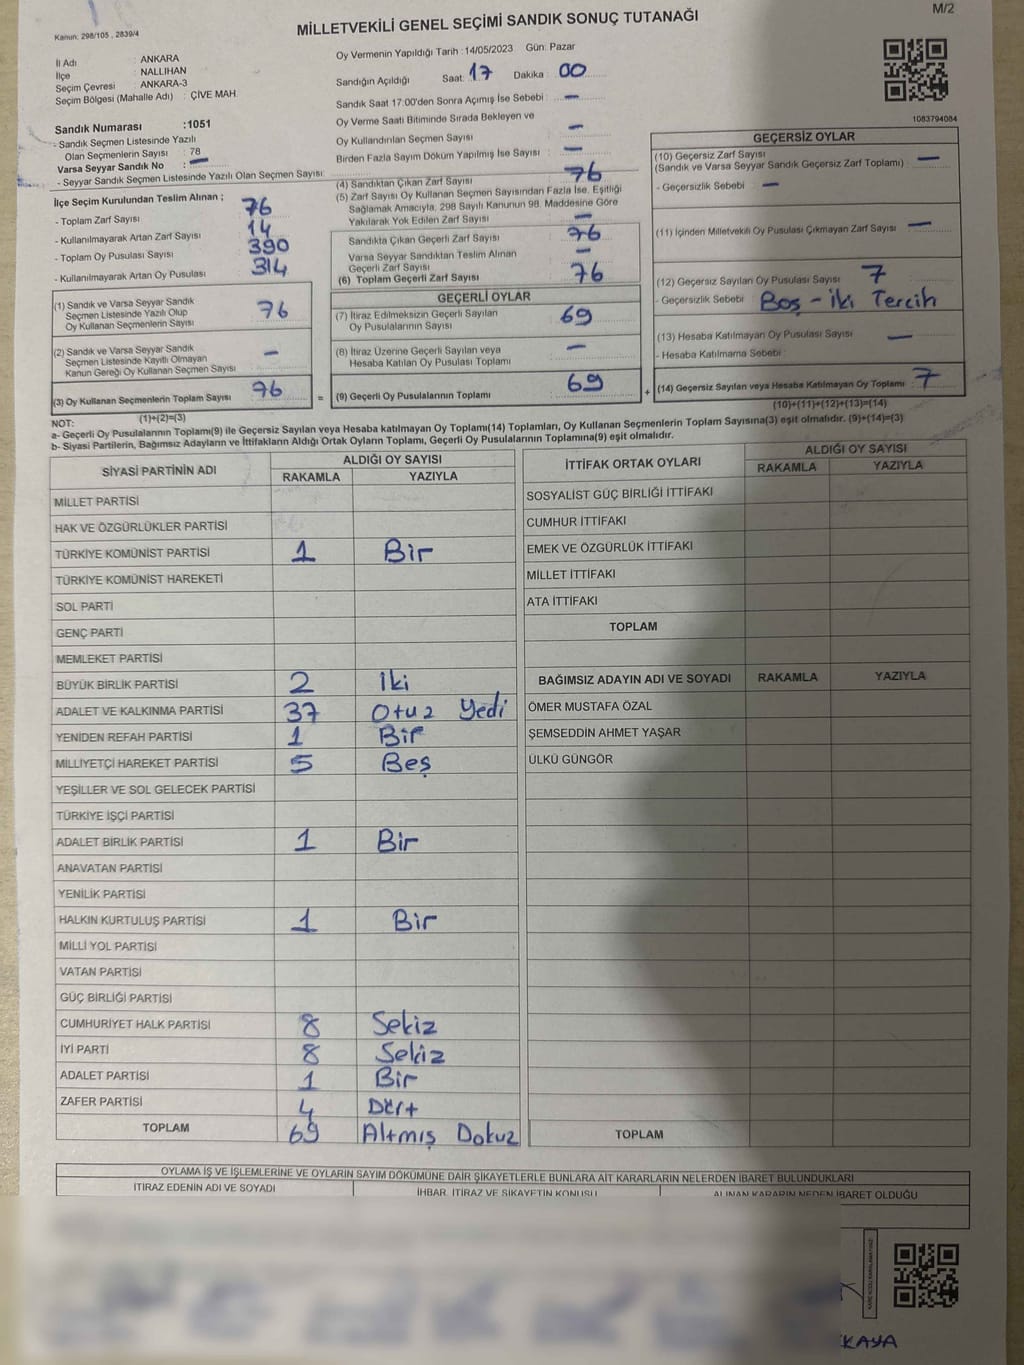 Kanun: 298/105 , 2839/4
MİLLETVEKİLİ GENEL SEÇİMİ SANDIK SONUÇ TUTANAĞI
M/2
İl Adı : ANKARA
İlçe : NALLIHAN
Seçim Çevresi : ANKARA-3
Seçim Bölgesi (Mahalle Adı) : ÇİVE MAH.
Sandık Numarası :1051
- Sandık Seçmen Listesinde Yazılı
Olan Seçmenlerin Sayısı : 78
Varsa Seyyar Sandık No : —
- Seyyar Sandık Seçmen Listesinde Yazılı Olan Seçmen Sayısı:
Oy Vermenin Yapıldığı Tarih :14/05/2023 Gün: Pazar
Sandığın Açıldığı Saat: 17 Dakika : 00
Sandık Saat 17:00'den Sonra Açımış İse Sebebi : —
Oy Verme Saati Bitiminde Sırada Bekleyen ve
Oy Kullandırılan Seçmen Sayısı —
Birden Fazla Sayım Döküm Yapılmış İse Sayısı : —
1083794084
İlçe Seçim Kurulundan Teslim Alınan ;
- Toplam Zarf Sayısı : 76
- Kullanılmayarak Artan Zarf Sayısı : 14
- Toplam Oy Pusulası Sayısı : 390
- Kullanılmayarak Artan Oy Pusulası : 314
(1) Sandık ve Varsa Seyyar Sandık
Seçmen Listesinde Yazılı Olup
Oy Kullanan Seçmenlerin Sayısı 76
(2) Sandık ve Varsa Seyyar Sandık
Seçmen Listesinde Kayıtlı Olmayan
Kanun Gereği Oy Kullanan Seçmen Sayısı —
(3) Oy Kullanan Seçmenlerin Toplam Sayısı 76
(1)+(2)=(3)
(4) Sandıktan Çıkan Zarf Sayısı 76
(5) Zarf Sayısı Oy Kullanan Seçmen Sayısından Fazla İse, Eşitliği
Sağlamak Amacıyla, 298 Sayılı Kanunun 98. Maddesine Göre
Yakılarak Yok Edilen Zarf Sayısı —
Sandıkta Çıkan Geçerli Zarf Sayısı 76
Varsa Seyyar Sandıktan Teslim Alınan
Geçerli Zarf Sayısı —
(6) Toplam Geçerli Zarf Sayısı 76
GEÇERLİ OYLAR
(7) İtiraz Edilmeksizin Geçerli Sayılan
Oy Pusulalarının Sayısı 69
(8) İtiraz Üzerine Geçerli Sayılan veya
Hesaba Katılan Oy Pusulası Toplamı —
= (9) Geçerli Oy Pusulalarının Toplamı 69 +
GEÇERSİZ OYLAR
(10) Geçersiz Zarf Sayısı
(Sandık ve Varsa Seyyar Sandık Geçersiz Zarf Toplamı) : —
- Geçersizlik Sebebi : —
(11) İçinden Milletvekili Oy Pusulası Çıkmayan Zarf Sayısı : —
(12) Geçersiz Sayılan Oy Pusulası Sayısı : 7
- Geçersizlik Sebebi : Boş - İki Tercih
(13) Hesaba Katılmayan Oy Pusulası Sayısı : —
- Hesaba Katılmama Sebebi :
(14) Geçersiz Sayılan veya Hesaba Katılmayan Oy Toplamı : 7
(10)+(11)+(12)+(13)=(14)
NOT:
a- Geçerli Oy Pusulalarının Toplamı(9) ile Geçersiz Sayılan veya Hesaba katılmayan Oy Toplamı(14) Toplamları, Oy Kullanan Seçmenlerin Toplam Sayısına(3) eşit olmalıdır. (9)+(14)=(3)
b- Siyasi Partilerin, Bağımsız Adayların ve İttifakların Aldığı Ortak Oyların Toplamı, Geçerli Oy Pusulalarının Toplamına(9) eşit olmalıdır.
SİYASİ PARTİNİN ADI ALDIĞI OY SAYISI
RAKAMLA YAZIYLA
MİLLET PARTİSİ
HAK VE ÖZGÜRLÜKLER PARTİSİ
TÜRKİYE KOMÜNİST PARTİSİ 1 Bir
TÜRKİYE KOMÜNİST HAREKETİ
SOL PARTİ
GENÇ PARTİ
MEMLEKET PARTİSİ
BÜYÜK BİRLİK PARTİSİ 2 İki
ADALET VE KALKINMA PARTİSİ 37 Otuz Yedi
YENİDEN REFAH PARTİSİ 1 Bir
MİLLİYETÇİ HAREKET PARTİSİ 5 Beş
YEŞİLLER VE SOL GELECEK PARTİSİ
TÜRKİYE İŞÇİ PARTİSİ
ADALET BİRLİK PARTİSİ 1 Bir
ANAVATAN PARTİSİ
YENİLİK PARTİSİ
HALKIN KURTULUŞ PARTİSİ 1 Bir
MİLLİ YOL PARTİSİ
VATAN PARTİSİ
GÜÇ BİRLİĞİ PARTİSİ
CUMHURİYET HALK PARTİSİ 8 Sekiz
İYİ PARTİ 8 Sekiz
ADALET PARTİSİ 1 Bir
ZAFER PARTİSİ 4 Dört
TOPLAM 69 Altmış Dokuz
İTTİFAK ORTAK OYLARI ALDIĞI OY SAYISI
RAKAMLA YAZIYLA
SOSYALİST GÜÇ BİRLİĞİ İTTİFAKI
CUMHUR İTTİFAKI
EMEK VE ÖZGÜRLÜK İTTİFAKI
MİLLET İTTİFAKI
ATA İTTİFAKI
TOPLAM
BAĞIMSIZ ADAYIN ADI VE SOYADI RAKAMLA YAZIYLA
ÖMER MUSTAFA ÖZAL
ŞEMSEDDİN AHMET YAŞAR
ÜLKÜ GÜNGÖR
TOPLAM
OYLAMA İŞ VE İŞLEMLERİNE VE OYLARIN SAYIM DÖKÜMÜNE DAİR ŞİKAYETLERLE BUNLARA AİT KARARLARIN NELERDEN İBARET BULUNDUKLARI
İTİRAZ EDENİN ADI VE SOYADI İHBAR, İTİRAZ VE ŞİKAYETİN KONUSU ALINAN KARARIN NEDEN İBARET OLDUĞU
KAYA